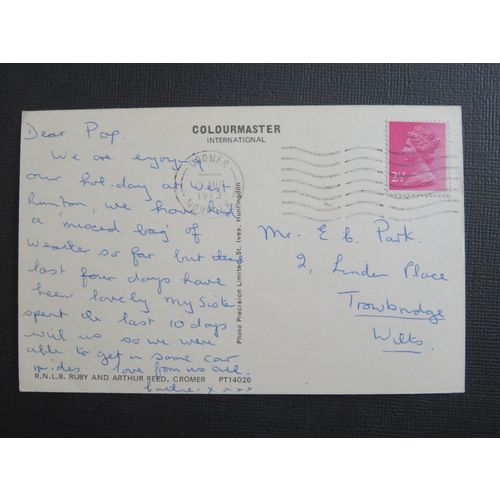 COLOURMASTER
INTERNATIONAL
CROMER
1973
NORFOLK
2½
Dear Pop.
We are enjoying
our holiday at West
Runton, we have had
a 'mixed bag' of
Weather so far but the
last four days have
been lovely. My Sister
spent the last 10 days
with us so we were
able to get in some car
rides. love from us all.
x x x x
Mr. E. C. Park.
2, Linden Place
Trowbridge
Wilts.
Photo Precision Limited, St. Ives, Huntingdon
R.N.L.B. RUBY AND ARTHUR REED, CROMER PT14026